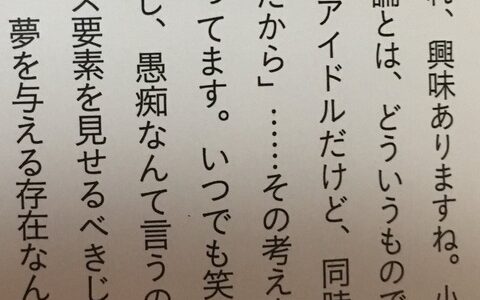 、興味ありますね。
論とは、どういうもので
アイドルだけど、同時
だから」……その考え
ってます。いつでも笑
し、愚痴なんて言うの
ス要素を見せるべきじ
夢を与える存在なん